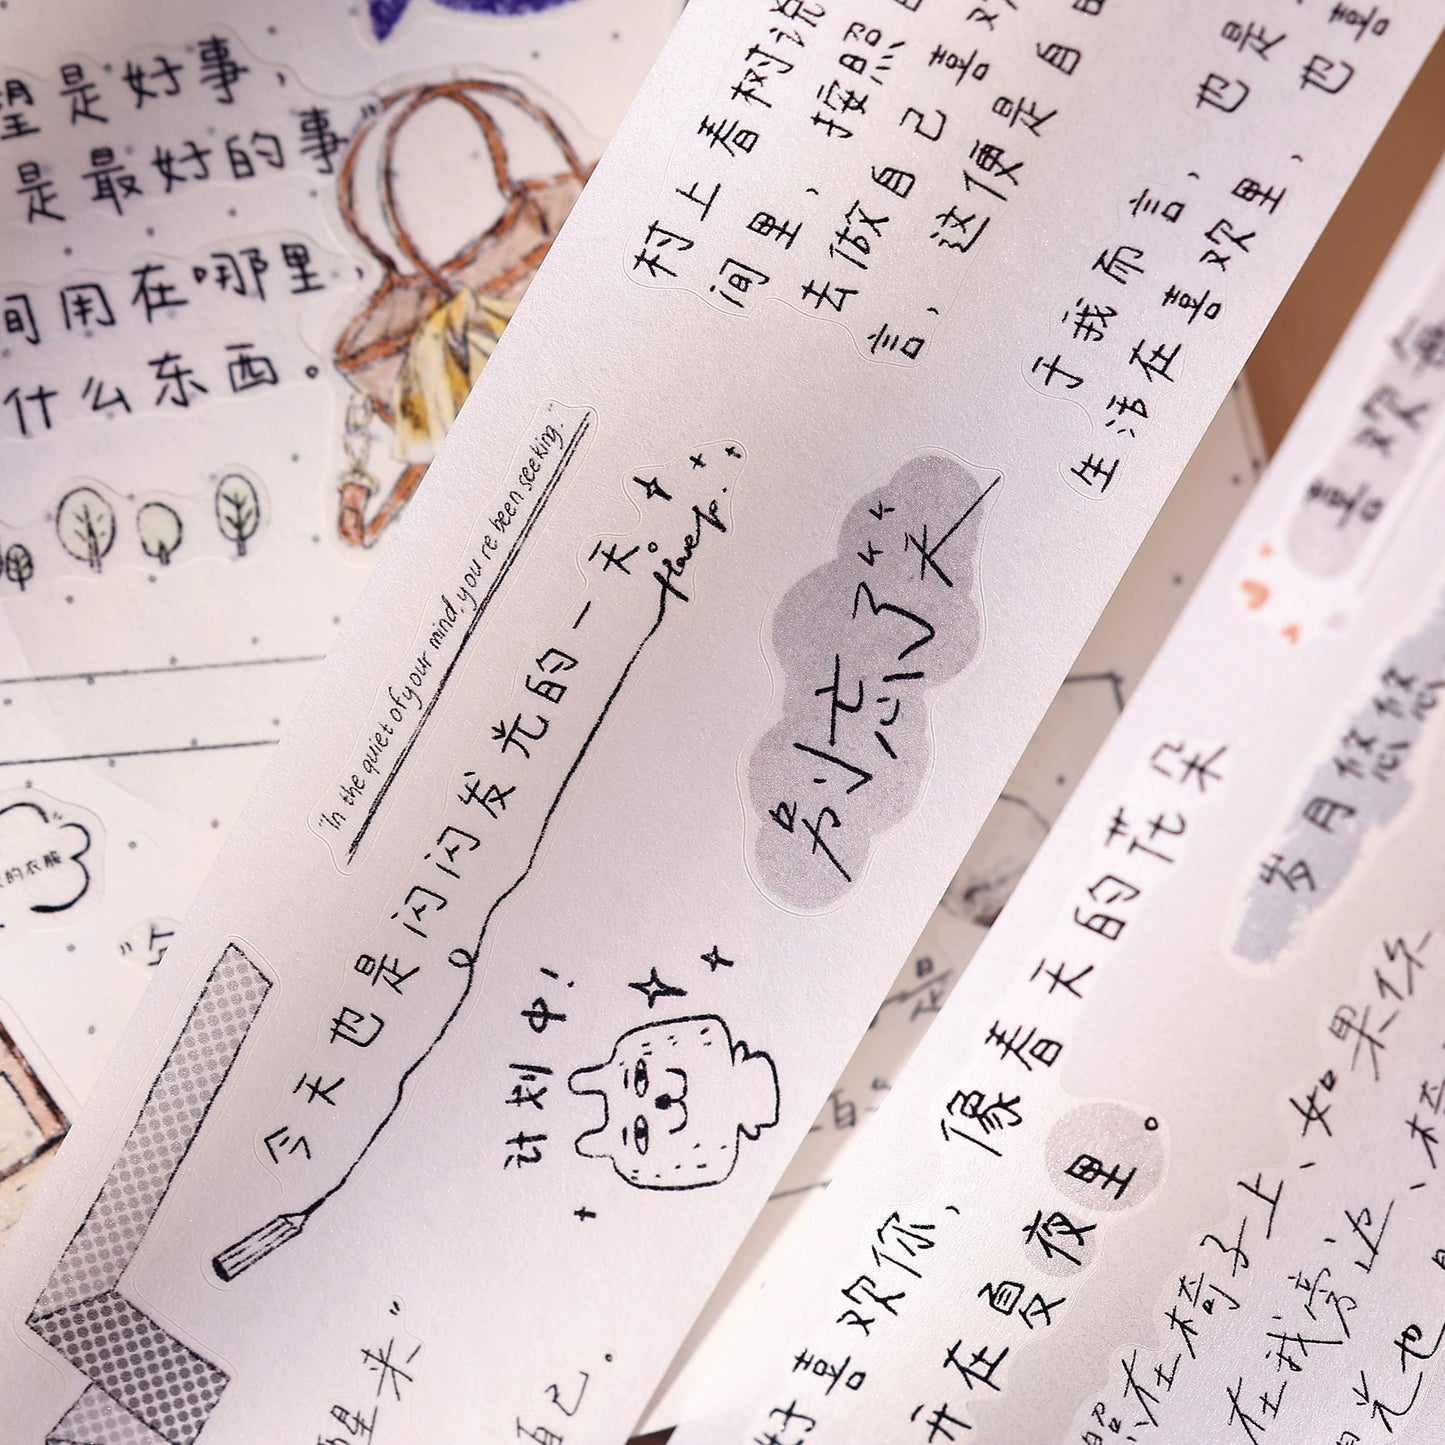 望是好事，
是最好的事”
间用在哪里，
什么东西。
的衣服
村上春树说
间里、按照
去做自己喜欢
言，这便是自
于我而言，也是
生活在喜欢里，也喜
"In the quiet of your mind, you're been seeking."
今天也是闪闪发光的一天。
别忘了
计划中！
喜欢
岁月悠悠
好喜欢你，像春天的花朵
开在夏夜里。
在椅子上、如果你
在我旁边、
光也
星来”
自己。